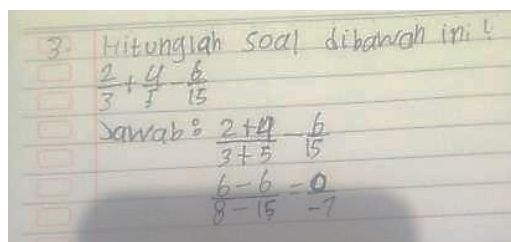 3. Hitunglah soal dibawah ini!
2/3 + 4/5 - 6/15
Jawab: (2+4)/(3+5) - 6/15
(6-6)/(8-15) = 0/-7